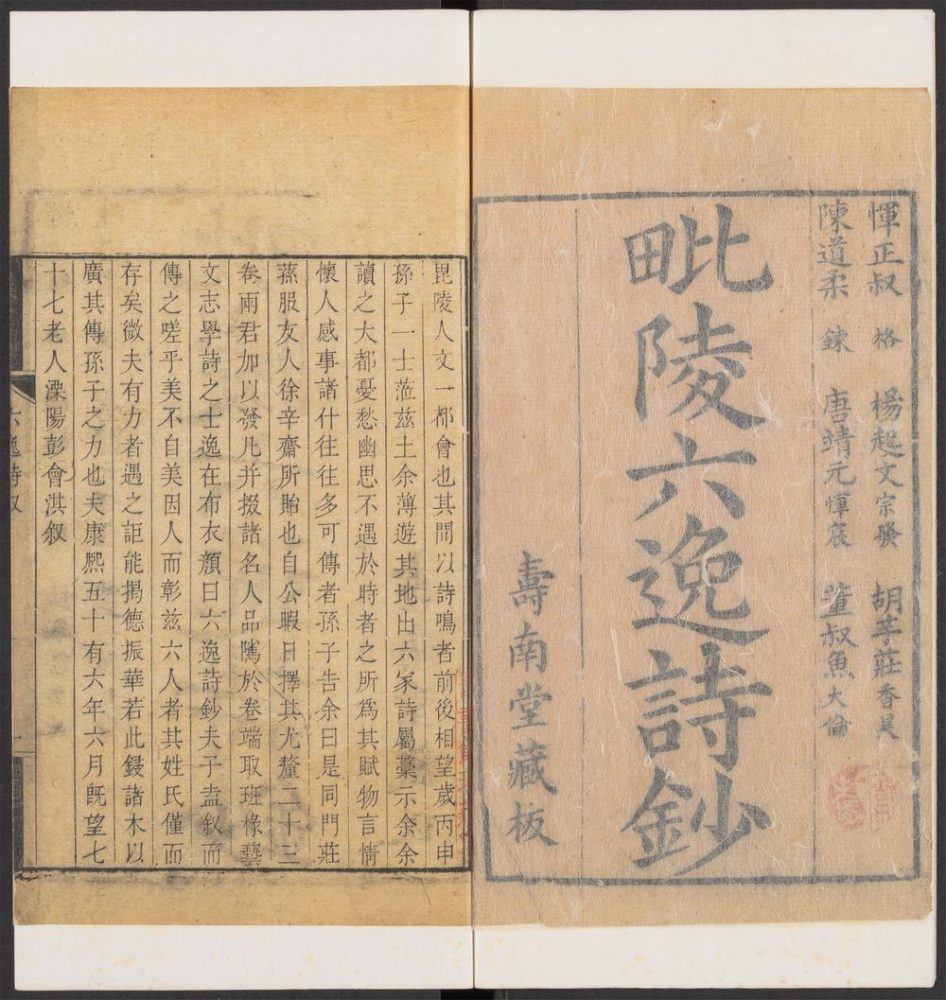 惲正叔 格 楊起文 宗發 胡芋莊 香昊
陳道柔 鍊 唐靖元 惲宸 董叔魚 大倫
毗陵六逸詩鈔
壽南堂藏板
毘陵人文一都會也其間以詩鳴者前後相望歲丙申
孫子一士蒞兹土余薄遊其地出六家詩屬藁示余余
讀之大都憂愁幽思不遇於時者之所爲其賦物言情
懷人感事諸什往往多可傳者孫子告余曰是同門莊
蓀服友人徐辛齋所貽也自公暇日擇其尤釐二十三
卷兩君加以發凡并掇諸名人品騭於卷端取班椽藝
文志學詩之士逸在布衣顏曰六逸詩鈔夫子盍叙而
傳之嗟乎美不自美因人而彰兹六人者其姓氏僅而
存矣微夫有力者遇之詎能揭德振華若此鋟諸木以
廣其傳孫子之力也夫康熙五十有六年六月既望七
十七老人溧陽彭會淇叙
六逸詩叙
一